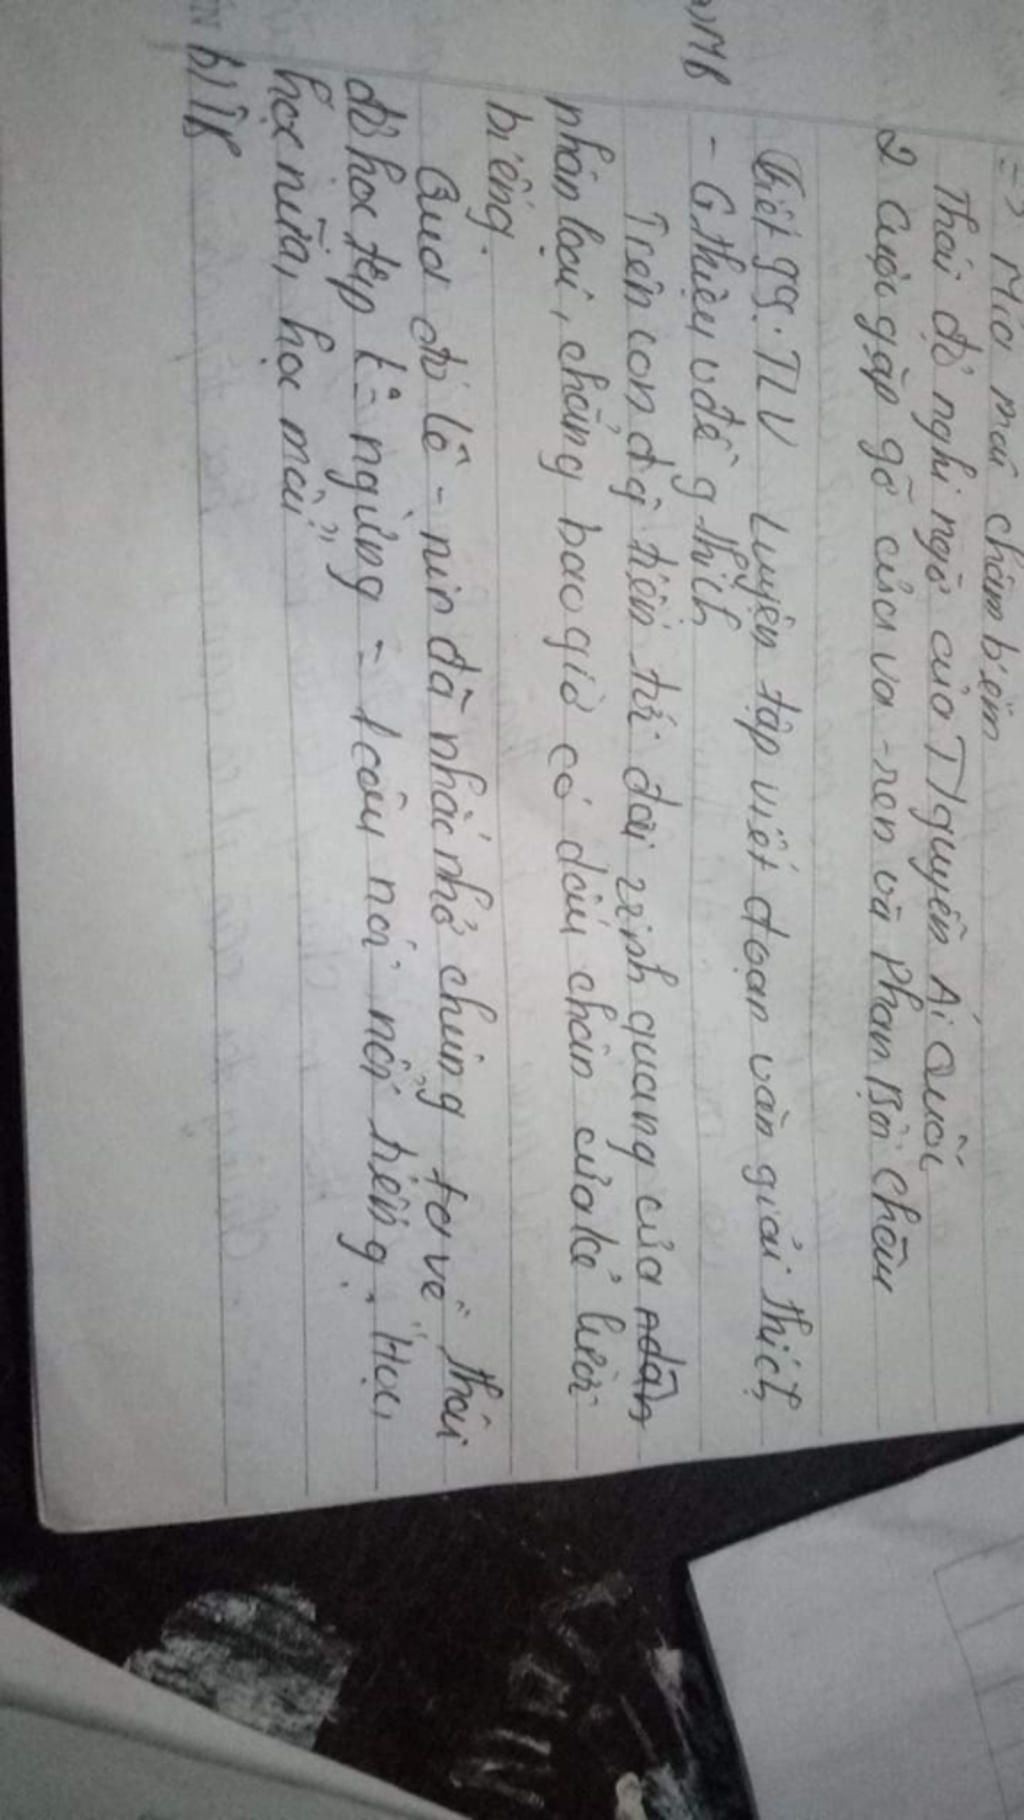 => Mỉa mai châm biếm
Thái độ nghi ngờ của Nguyễn Ái Quốc
2 Cuộc gặp gỡ của va-ren và Phan Bội Châu
Tiết 99: TLV Luyện tập viết đoạn văn giải thích
a) MB
- G.thiệu vđề g.thích
Trên con đg tiến tới đài vinh quang của nhân
nhân loại, chẳng bao giờ có dấu chân của kẻ lười
biếng.
Qua đó Lê-nin đã nhắc nhở chúng ta về thái
độ học tập k ngừng = 1 câu nói nổi tiếng: "Học,
học nữa, học mãi"
b) TB